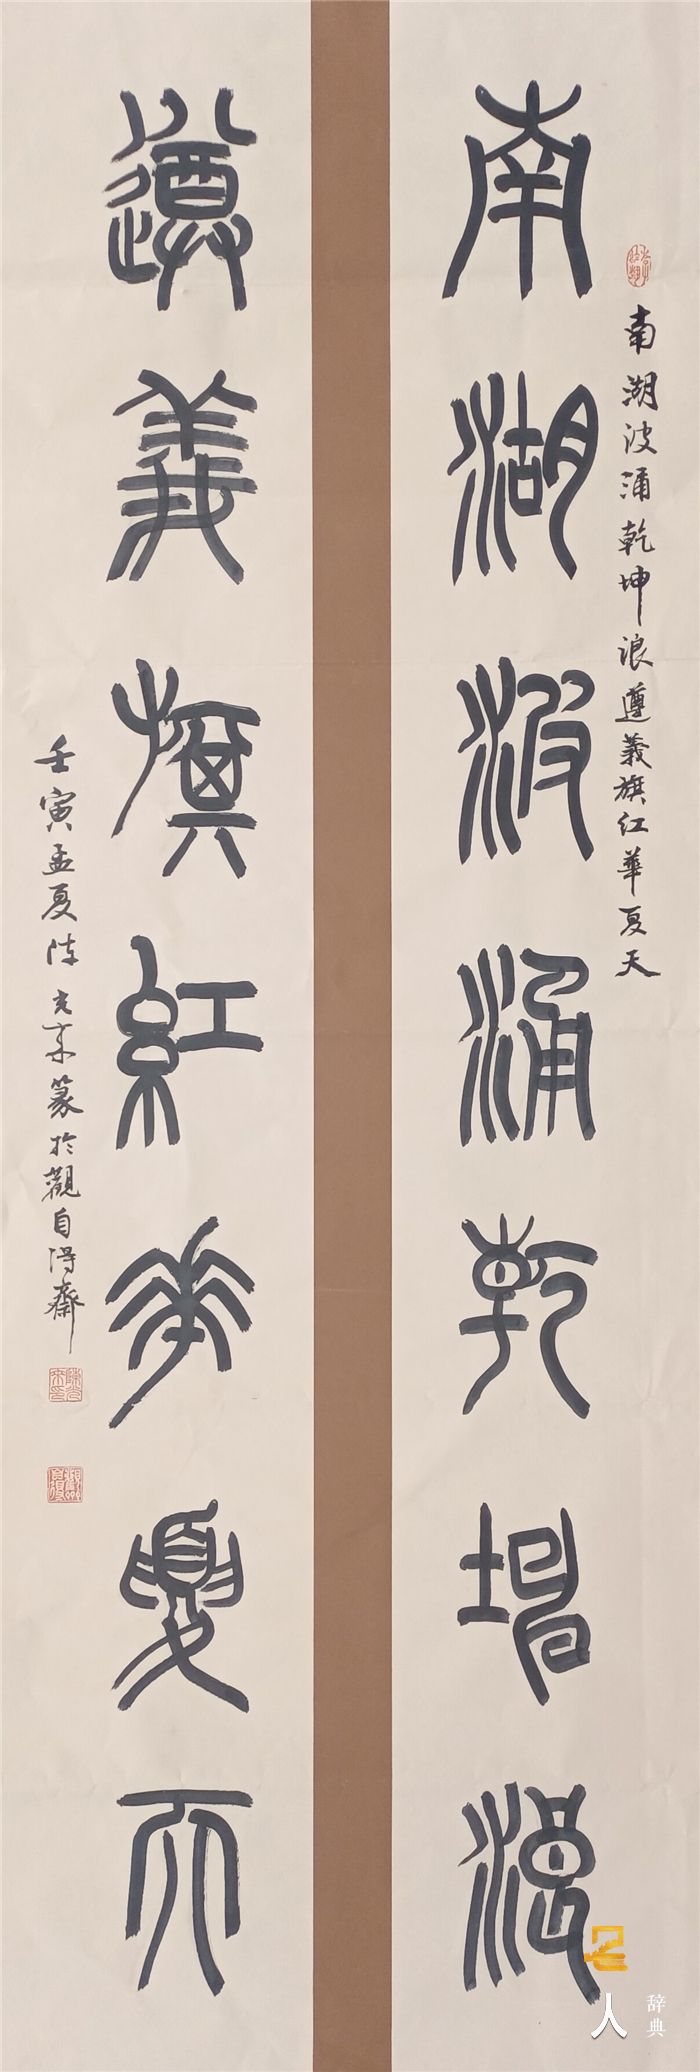 南湖波涌乾坤浪
南湖波涌乾坤浪遵義旗紅華夏天
遵義旗紅華夏天
壬寅孟夏陈光来篆於觀自得齋
名人
辞典